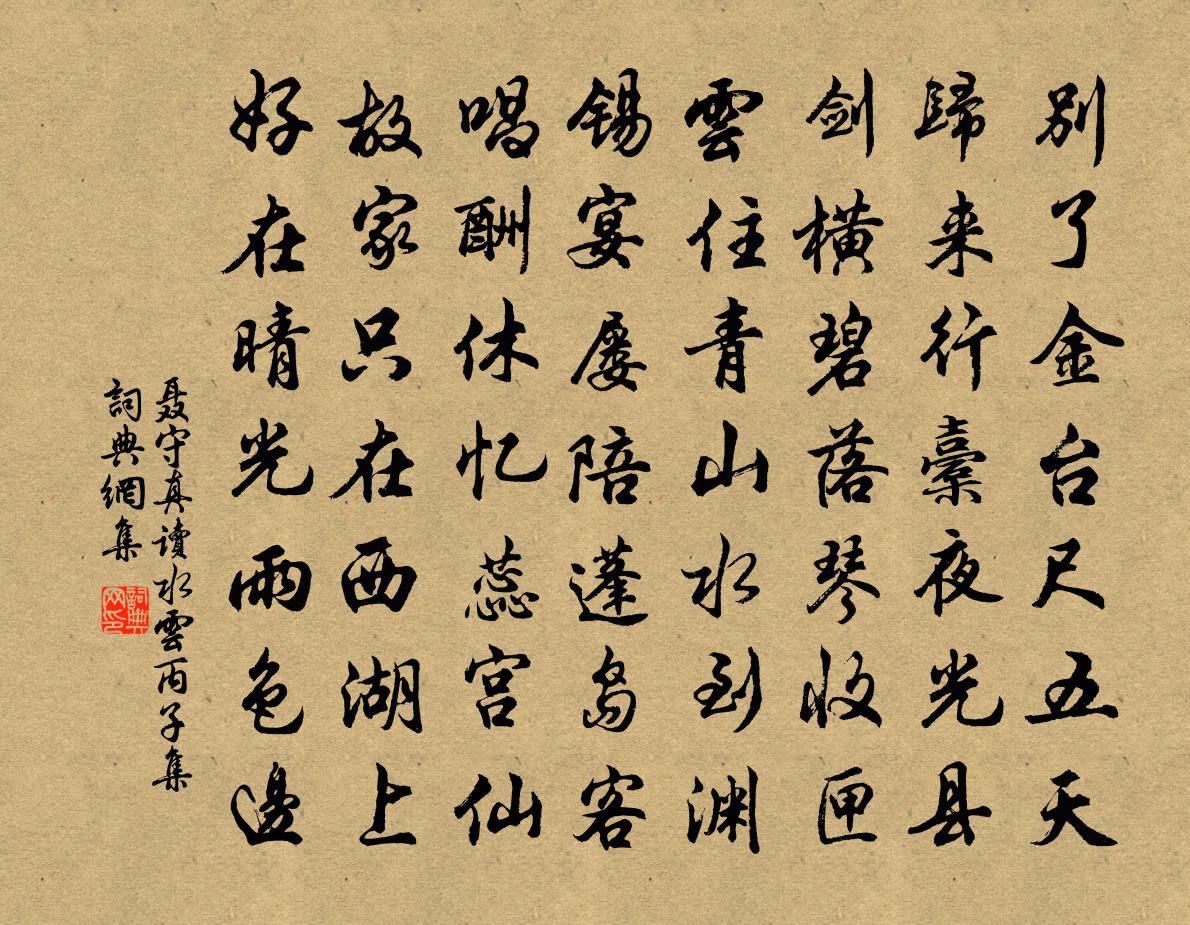 別了金台尺五天
歸来行橐夜光县
剑横碧落琴收匣
雲住青山水到渊
锡宴屡陪蓬岛客
唱酬休忆蕊宫仙
故家只在西湖上
好在晴光雨色邊
聂守真讀水雲丙子集
詞典網集
詞典网印